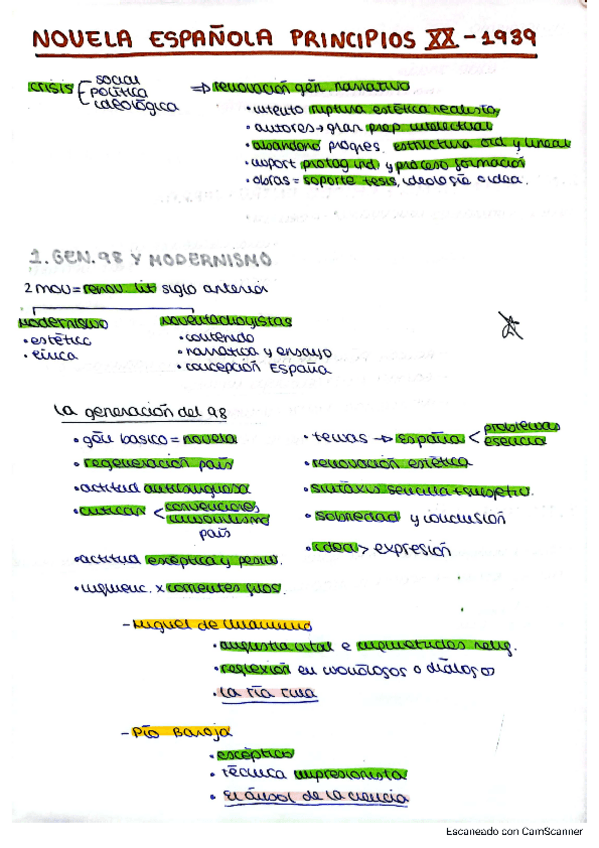 NOVELA ESPAÑOLA PRINCIPIOS XX - 1939
crisis social política ideológica ⇒ renovación gén. narrativo
• intento ruptura estética realista
• autores → gran prep intelectual
• abandono progres. estructura ord y lineal
• import protag ind y proceso formación
• obras = soporte tesis, ideología o idea.
1. GEN. 98 Y MODERNISMO
2 mov = renov. lit siglo anterior
Modernismo
• estético
• lírica
Noventaochoyistas
• contenido
• narrativa y ensayo
• concepción España
La generación del 98
• gén básico = novela
• regeneración país
• actitud
• critican < convenciones
país
• actitud escéptica y pesim.
• influenc. x corrientes filos.
• temas → España < problemas esencia
• renovación estética
• sintaxis sencilla + subjetiv.
• sobriedad y conclusión
• idea > expresión
- Miguel de Unamuno
• angustia vital e inquietudes relig.
• reflexión en monólogos o diálogos
• La tía Tula
- Pío Baroja
• escéptico
• técnica impresionista
• El árbol de la ciencia
Escaneado con CamScanner